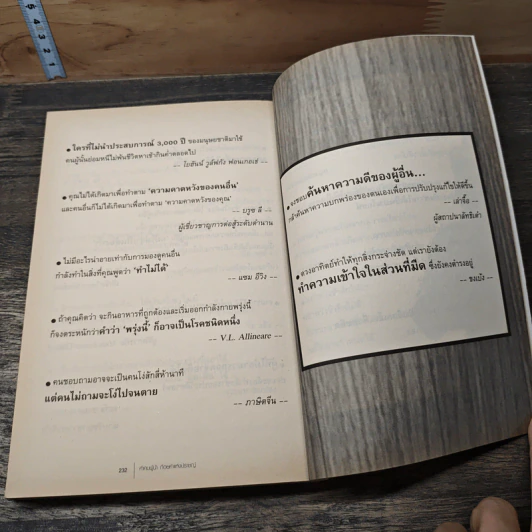 ● ใครที่ไม่นำประสบการณ์ 3,000 ปี ของมนุษยชาติมาใช้
คนผู้นั้นย่อมหนีไม่พ้นชีวิตหาเช้ากินค่ำตลอดไป
-- โยฮันน์ วูล์ฟกัง ฟอนเกอเธ่ --
● คุณไม่ได้เกิดมาเพื่อทำตาม 'ความคาดหวังของคนอื่น'
และคนอื่นก็ไม่ได้เกิดมาเพื่อทำตาม 'ความคาดหวังของคุณ'
-- บรูซ ลี --
ผู้เชี่ยวชาญการต่อสู้ระดับตำนาน
● ไม่มีอะไรน่าอายเท่ากับการมองดูคนอื่น
กำลังทำในสิ่งที่คุณพูดว่า 'ทำไม่ได้'
-- แซม อีวิง --
● ถ้าคุณคิดว่า จะกินอาหารที่ถูกต้องและเริ่มออกกำลังกายพรุ่งนี้
ก็จงตระหนักว่าคำว่า 'พรุ่งนี้' ก็อาจเป็นโรคชนิดหนึ่ง
-- V.L. Allineare --
● คนชอบถามอาจจะเป็นคนโง่สักสี่ห้านาที
แต่คนไม่ถามจะโง่ไปจนตาย
-- ภาษิตจีน --
232
● จงชอบค้นหาความดีของผู้อื่น...
กล้าค้นหาความบกพร่องของตนเองเพื่อการปรับปรุงแก้ไขให้ดีขึ้น
-- เล่าจื๊อ --
ผู้สถาปนาลัทธิเต๋า
● ดวงอาทิตย์ทำให้ทุกสิ่งกระจ่างชัด แต่เรายังต้อง
ทำความเข้าใจในส่วนที่มืด ซึ่งยังคงดำรงอยู่
-- ขงเบ้ง --
1
2
3
4
5